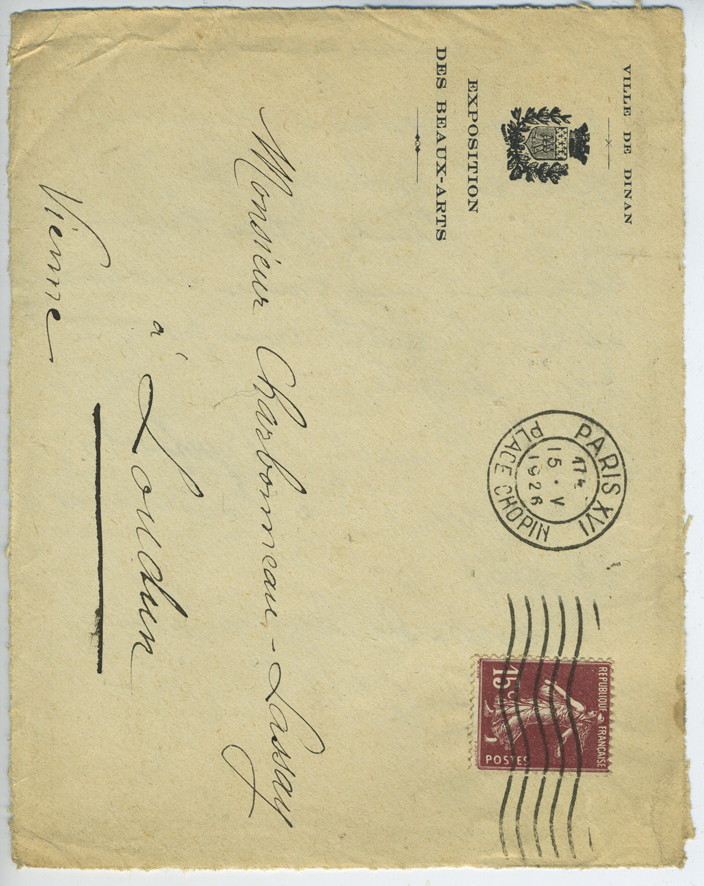 VILLE DE DINAN
EXPOSITION
DES BEAUX-ARTS
PARIS XVI
17
15 · V
1926
PLACE CHOPIN
REPUBLIQUE FRANÇAISE
15c
POSTES
Monsieur Charbonneau-Lassay
à Loudun
Vienne